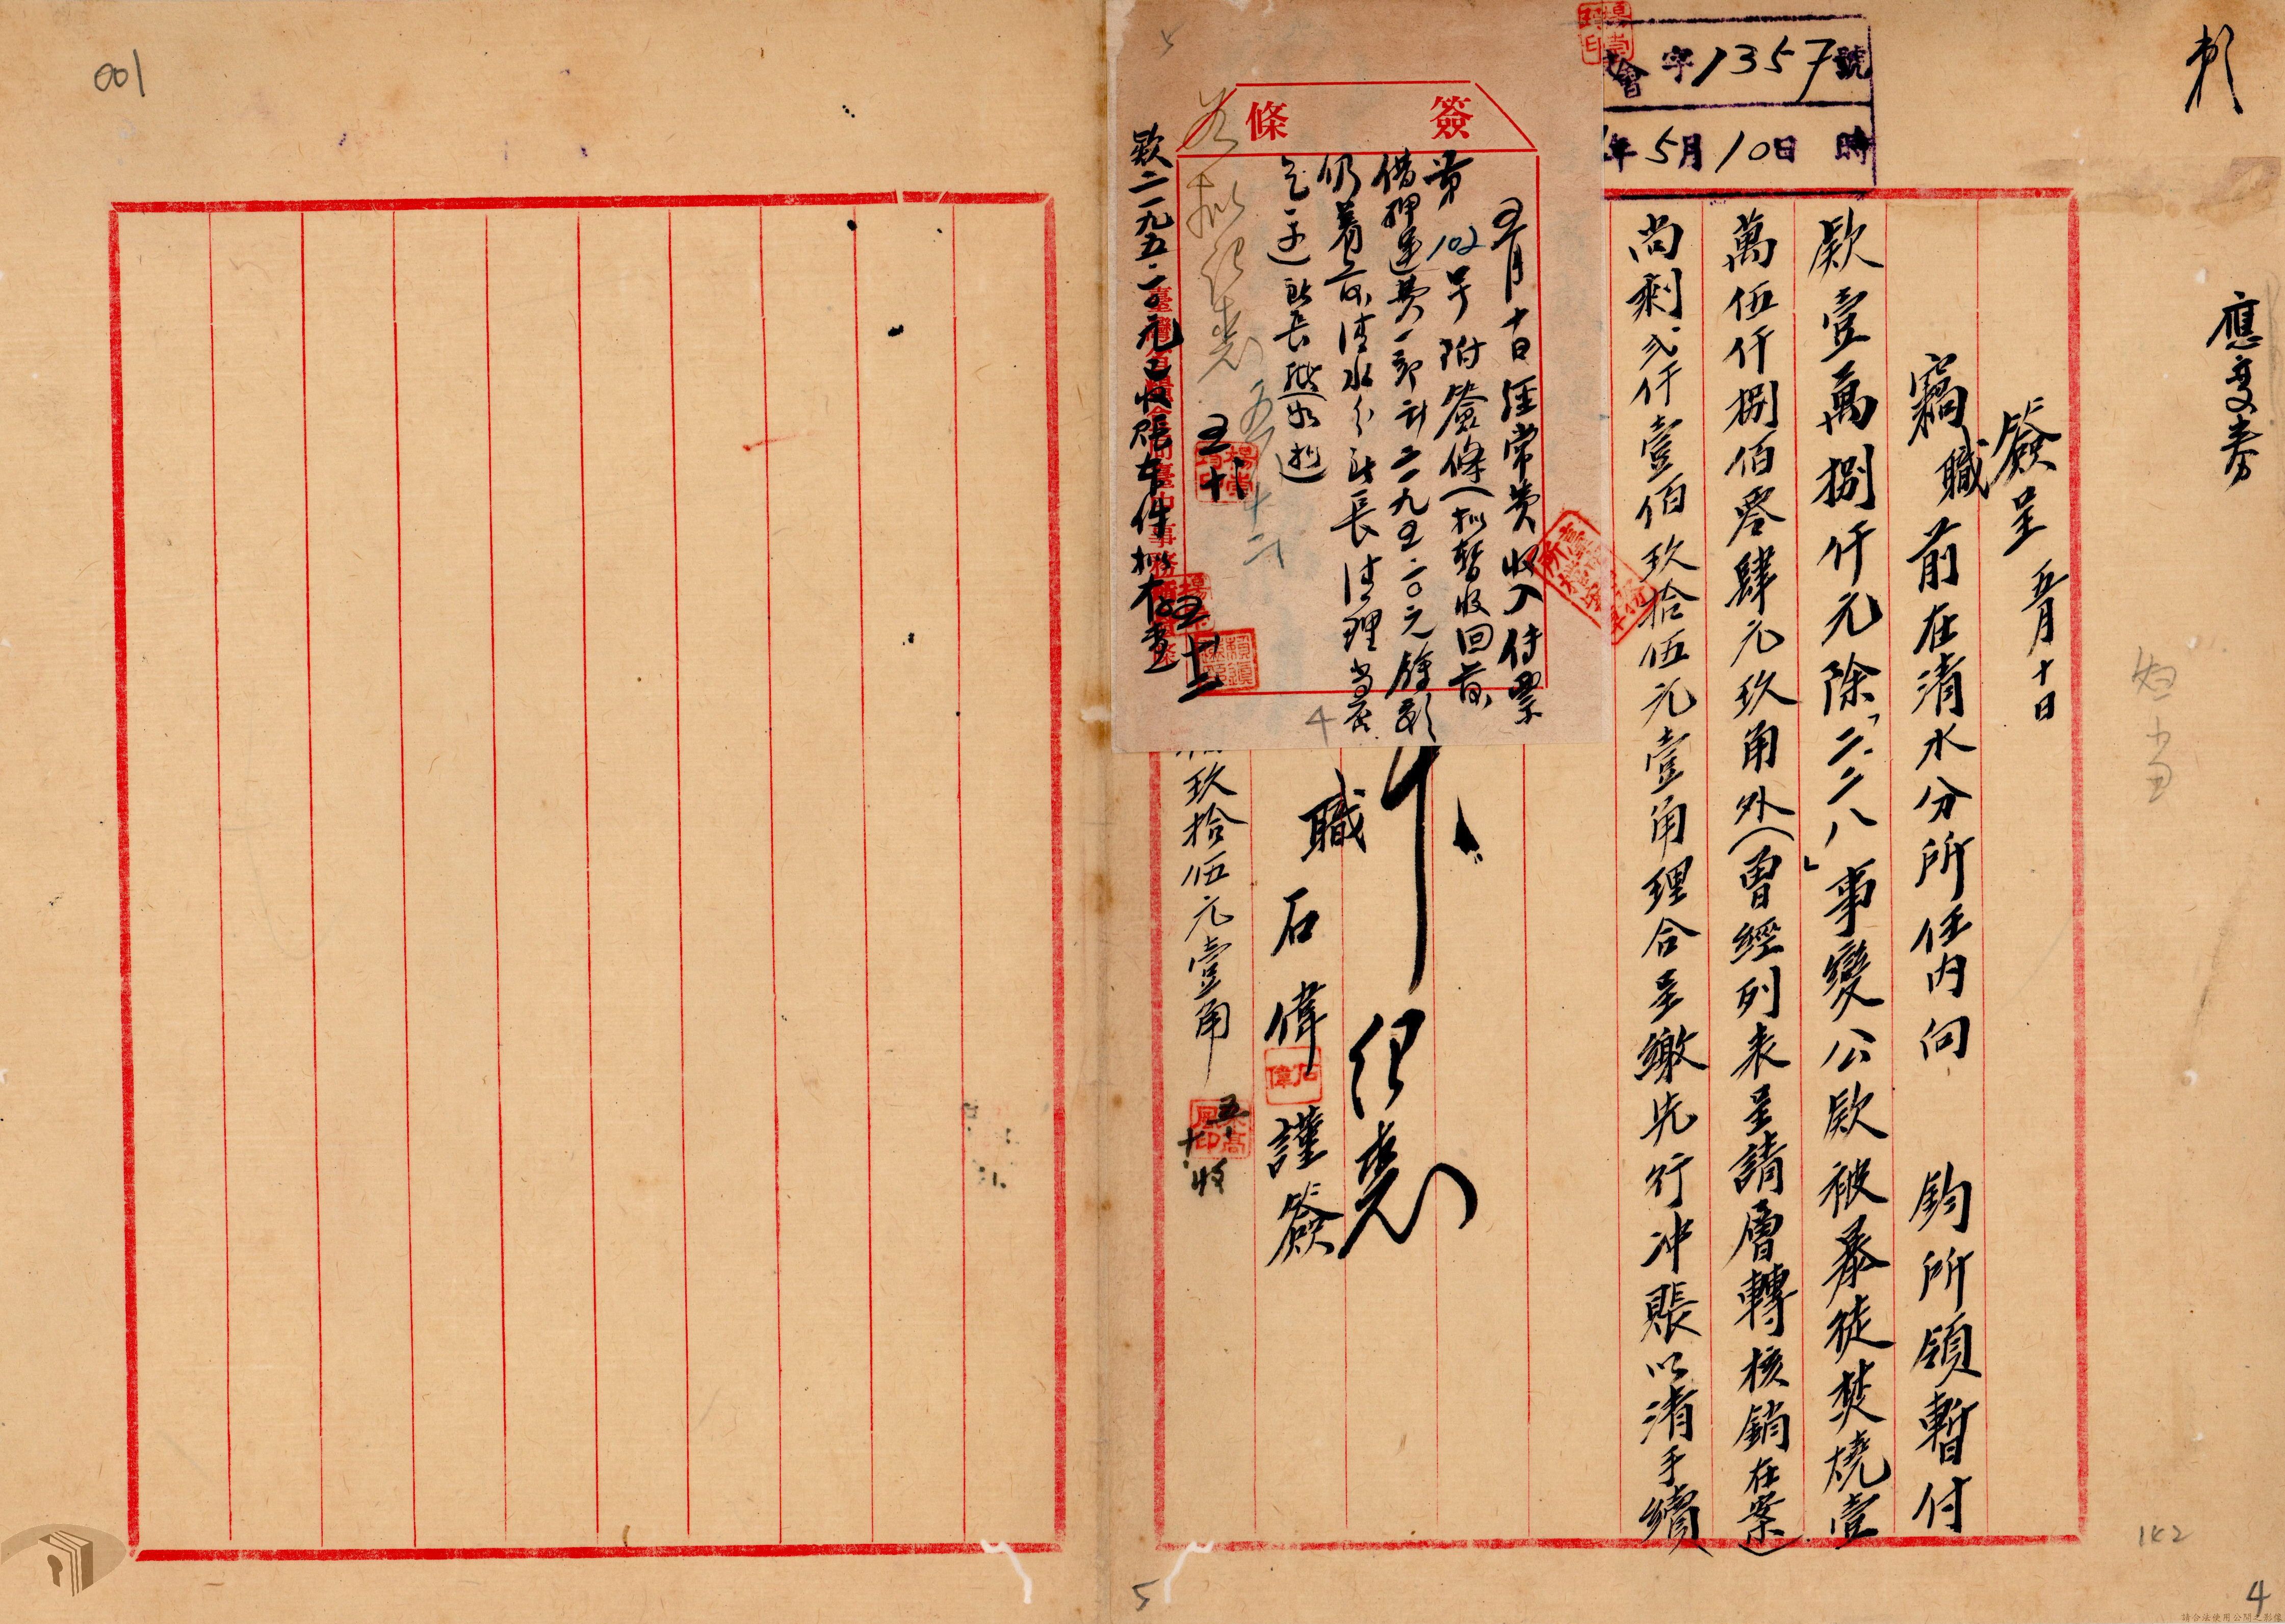 應變費
會字1357號
年5月10日 時
簽呈 五月十日
竊職前在清水分所任內向 鈞所領暫付
款壹萬捌仟元除「二.二八」事變公款被暴徒焚燒壹
萬伍仟捌佰零肆元玖角外(曾經列表呈請層轉核銷在案)
尚剩弍仟壹佰玖拾伍元壹角理合呈繳先行冲賬以清手續
職 石偉 謹簽
石偉
玖拾伍元壹角
五.十.收
簽條
五月十日經常費收入傳票
第102号附簽條(拟暫收回前
借押運費一部計二一九五.一〇元餘款
仍着前清水分所長清理
款二一九五.一〇元已收賬本件拟存查
001
4
5
142
4
請合法使用公開之影像